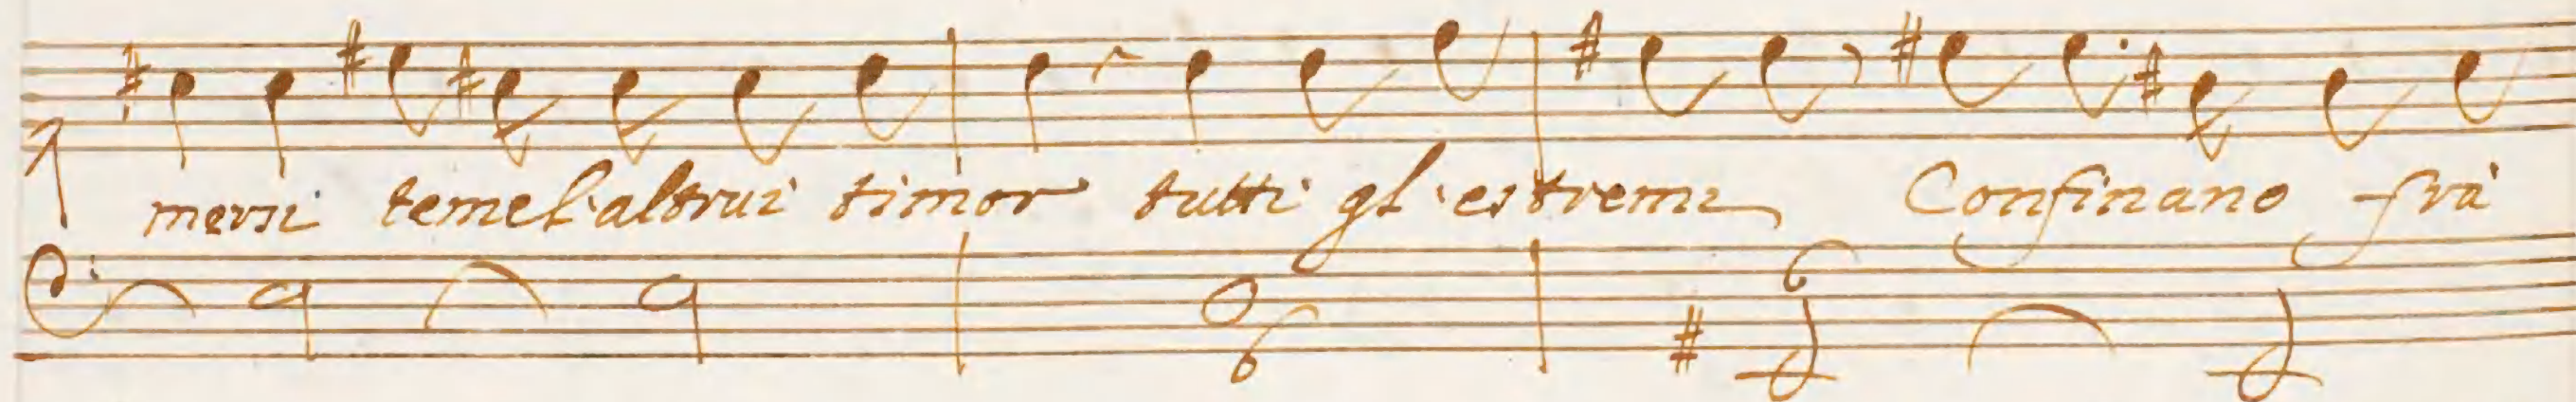 mersi teme l'altrui timor tutti gl'estremi Confinano frà
6
6